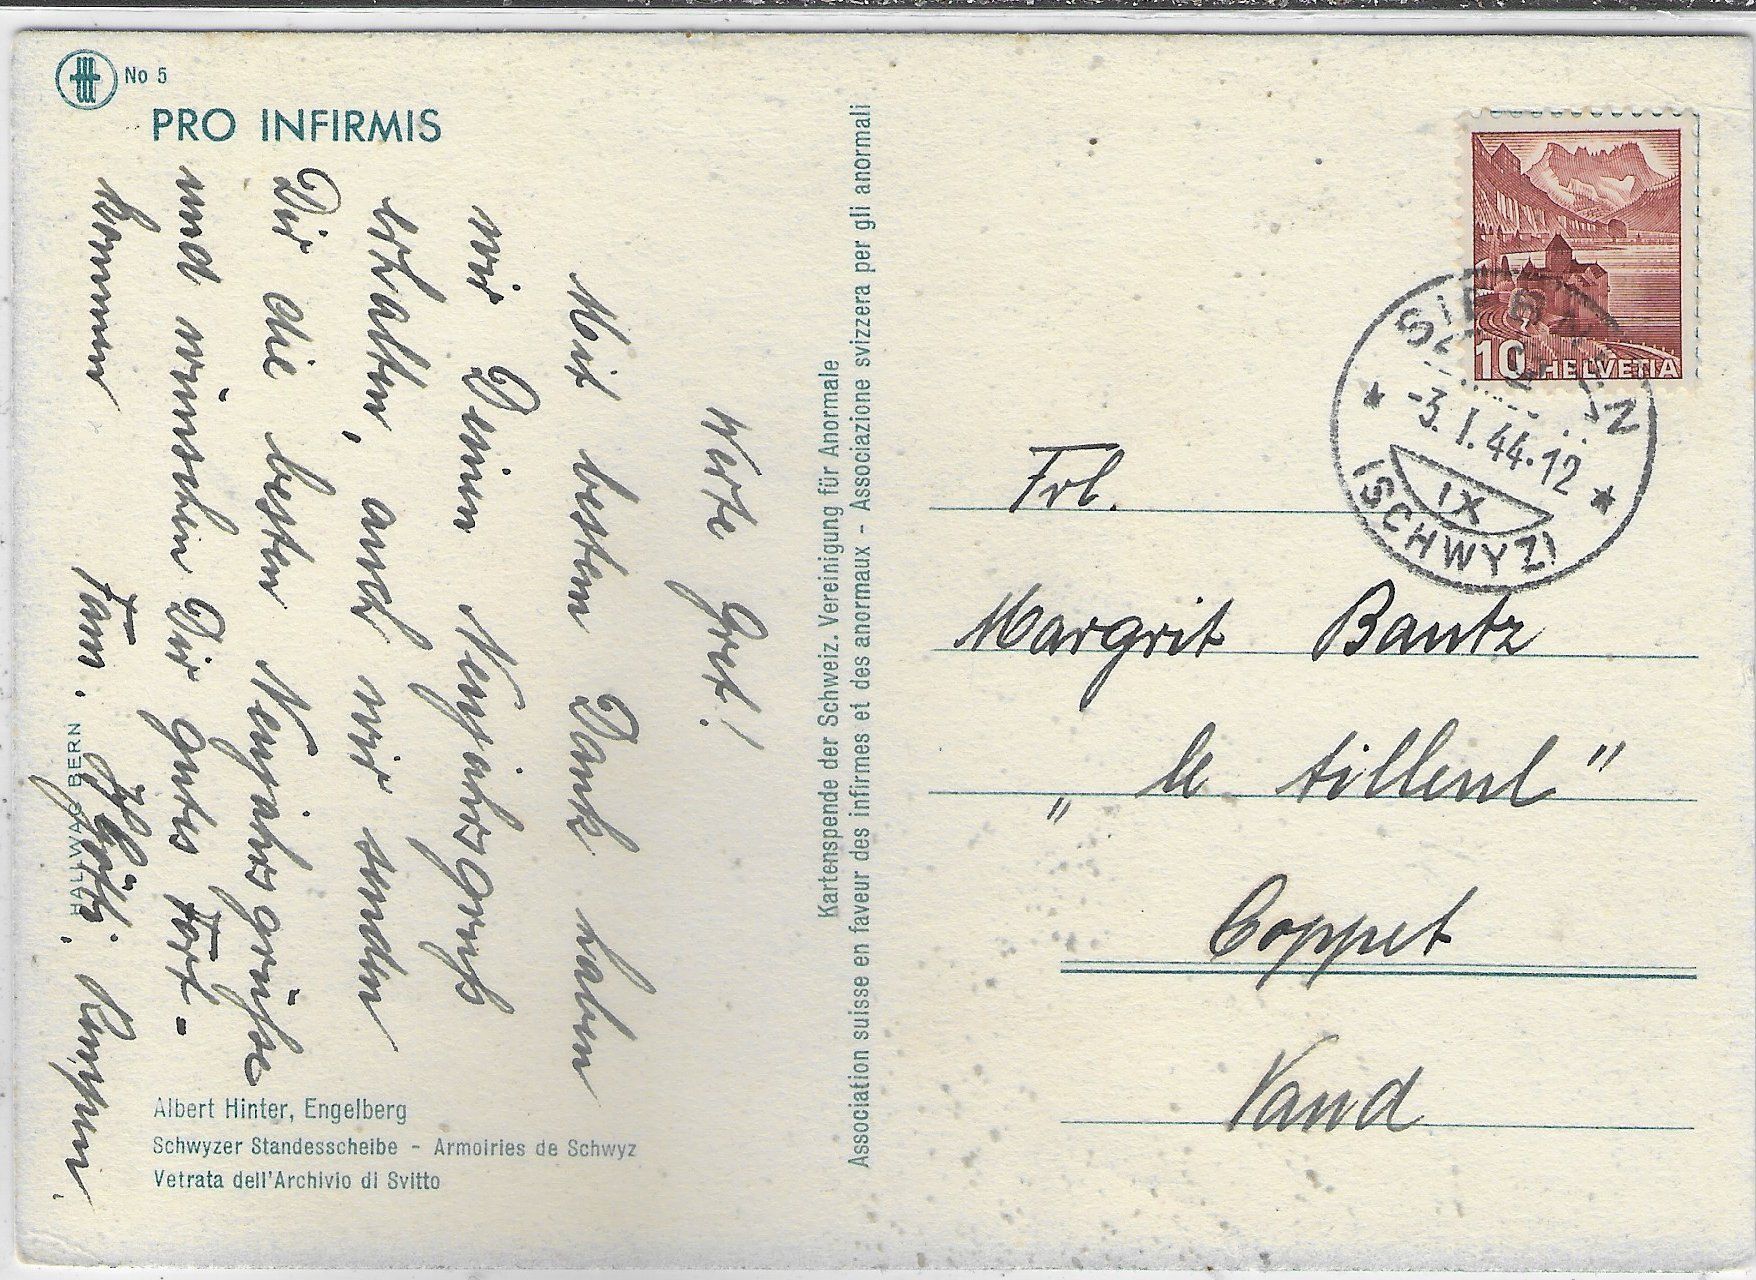 No 5
PRO INFIRMIS
Werte Gret!
Mit bestem Dank haben
wir Deinen Neujahrsgruß
erhalten, auch wir senden
Dir die besten Neujahrsgrüsse
und wünschen Dir gutes Fort-
kommen
Fam. Rumpeni.
HALLWAG BERN
Albert Hinter, Engelberg
Schwyzer Standesscheibe - Armoiries de Schwyz
Vetrata dell'Archivio di Svitto
Kartenspende der Schweiz. Vereinigung für Anormale
Association suisse en faveur des infirmes et des anormaux - Associazione svizzera per gli anormali
10 HELVETIA
SIEBNEN
-3.I.44-12
IX
(SCHWYZ)
Frl.
Margrit Bantz
„le tillent"
Coppet
Vaud